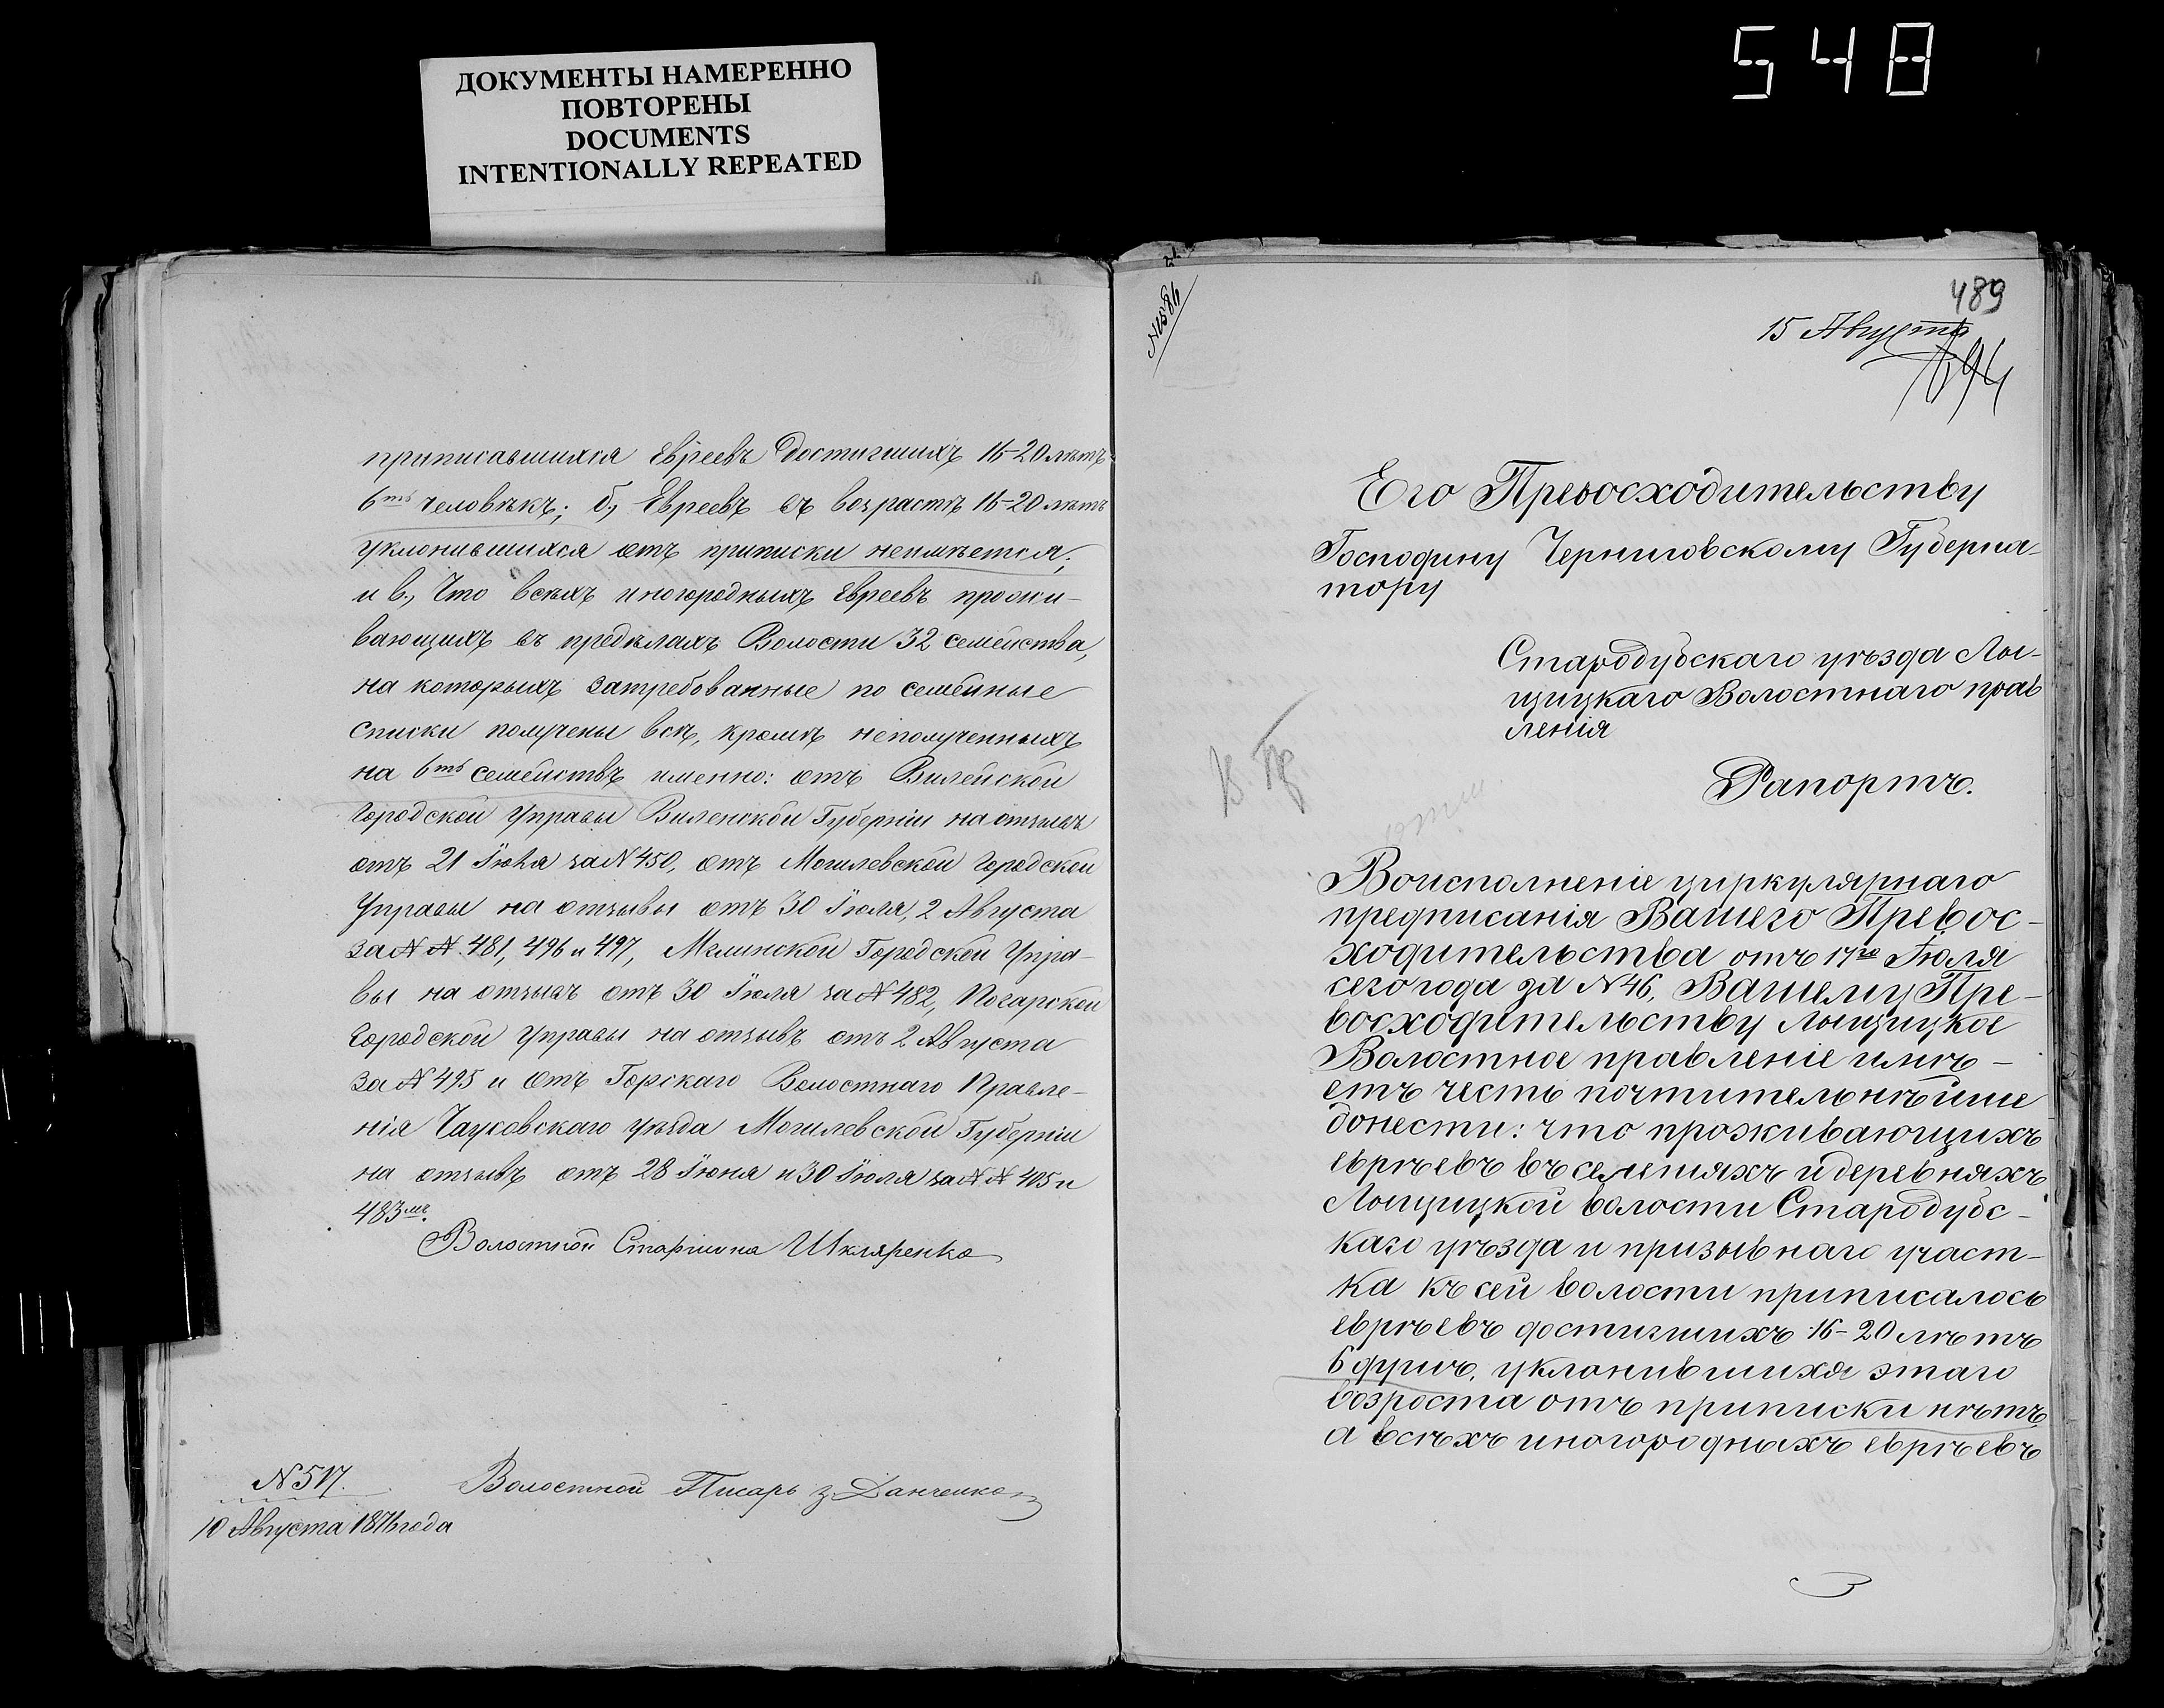 ДОКУМЕНТЫ НАМЕРЕННО
ПОВТОРЕНЫ
DOCUMENTS
INTENTIONALLY REPEATED
548
приписавшихся Евреевъ достигшихъ 16-20 лѣтъ
6ть человѣкъ; б, Евреевъ въ возрастѣ 16-20 лѣтъ
уклонившихся отъ приписки неимѣется;
и в, Что всѣхъ иногородныхъ Евреевъ прожи-
вающихъ въ предѣлахъ Волости 32 семейства,
на которыхъ затребованные по семейные
списки получены всѣ, кромѣ неполученныхъ
на 6ть семействъ именно: отъ Вилейской
Городской Управы Виленской Губерніи на отзывъ
отъ 21 за N 450, отъ Могилевской Городской
Управы на отзывы отъ 30 Іюля, 2 Августа
за N N 481, 496 и 497, Мглинской Городской Упра-
вы на отзывъ отъ 30 Іюля за N 482, Погарской
Городской Управы на отзывъ отъ 2 Августа
за N 495 и отъ Горскаго Волостнаго Правле-
нія Чаусовскаго уѣзда Могилевской Губерніи
на отзывъ отъ 28 Іюня и 30 Іюля за N N 405 и
483мъ.
Волостной Старшина Шкляренко
N 517.
10 Августа 1876 года
Волостной Писарь Данченко
N 1586
489
15 Августа
694
Его Превосходительству
Господину Черниговскому Губерна-
тору
Стародубскаго уѣзда Лы-
щицкаго Волостнаго прав
ленія
Рапортъ.
Воисполненіе циркулярнаго
предписанія Вашего Превос-
ходительства отъ 17го Іюля
сего года за N 46, Вашему Пре-
восходительству Лыщицкое
Волостное правленіе имѣ-
етъ честь почтительнѣйше
донести: что проживающихъ
еврѣевъ въ селеніяхъ и деревняхъ
Лыщицкой волости Стародубс-
каго уѣзда и призывнаго участ-
ка къ сей волости приписалось
еврѣевъ достигшихъ 16-20 лѣтъ
6 душъ, уклонившихся этаго
возроста отъ приписки нѣтъ,
а всѣхъ иногородныхъ еврѣевъ